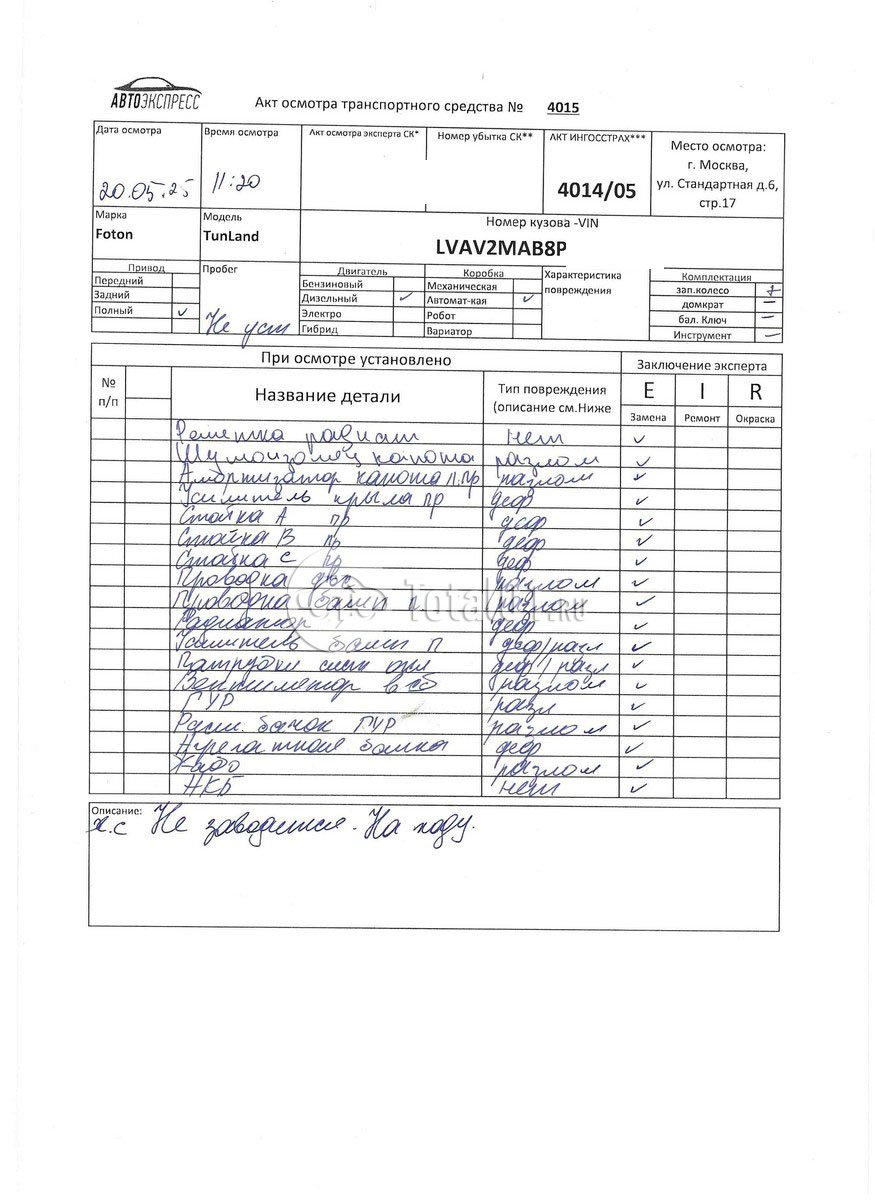 АВТОЭКСПРЕСС
Акт осмотра транспортного средства № 4015
Дата осмотра
20.05.25
Время осмотра
11:20
Акт осмотра эксперта СК*
Номер убытка СК**
АКТ ИНГОССТРАХ***
4014/05
Место осмотра:
г. Москва,
ул. Стандартная д.6,
стр.17
Марка
Foton
Модель
TunLand
Номер кузова -VIN
LVAV2MAB8P
Привод
Передний
Задний
Полный ✓
Пробег
Не уст
Двигатель
Бензиновый
Дизельный ✓
Электро
Гибрид
Коробка
Механическая
Автомат-кая ✓
Робот
Вариатор
Характеристика
повреждения
Комплектация
зап.колесо +
домкрат –
бал. Ключ –
Инструмент –
При осмотре установлено
Заключение эксперта
№
п/п
Название детали
Тип повреждения
(описание см.Ниже
E I R
Замена Ремонт Окраска
Решетка радиат нет ✓
Шумоизоляц капота разлом ✓
Амортизатор капота л.пр разлом ✓
Усилитель крыла пр деф ✓
Стойка А пр деф ✓
Стойка В пр деф ✓
Стойка С пр деф ✓
Проводка двс разлом ✓
Проводка бамп п разлом ✓
Радиатор деф ✓
Усилитель бамп п деф/разл ✓
Патрубки сист охл деф/разл ✓
Вентилятор в сб разлом ✓
ГУР разл ✓
Расш. бачок ГУР разлом ✓
деф ✓
разлом ✓
АКБ нет ✓
Описание:
х.с Не заводится. На ходу.
TotalCar.RU